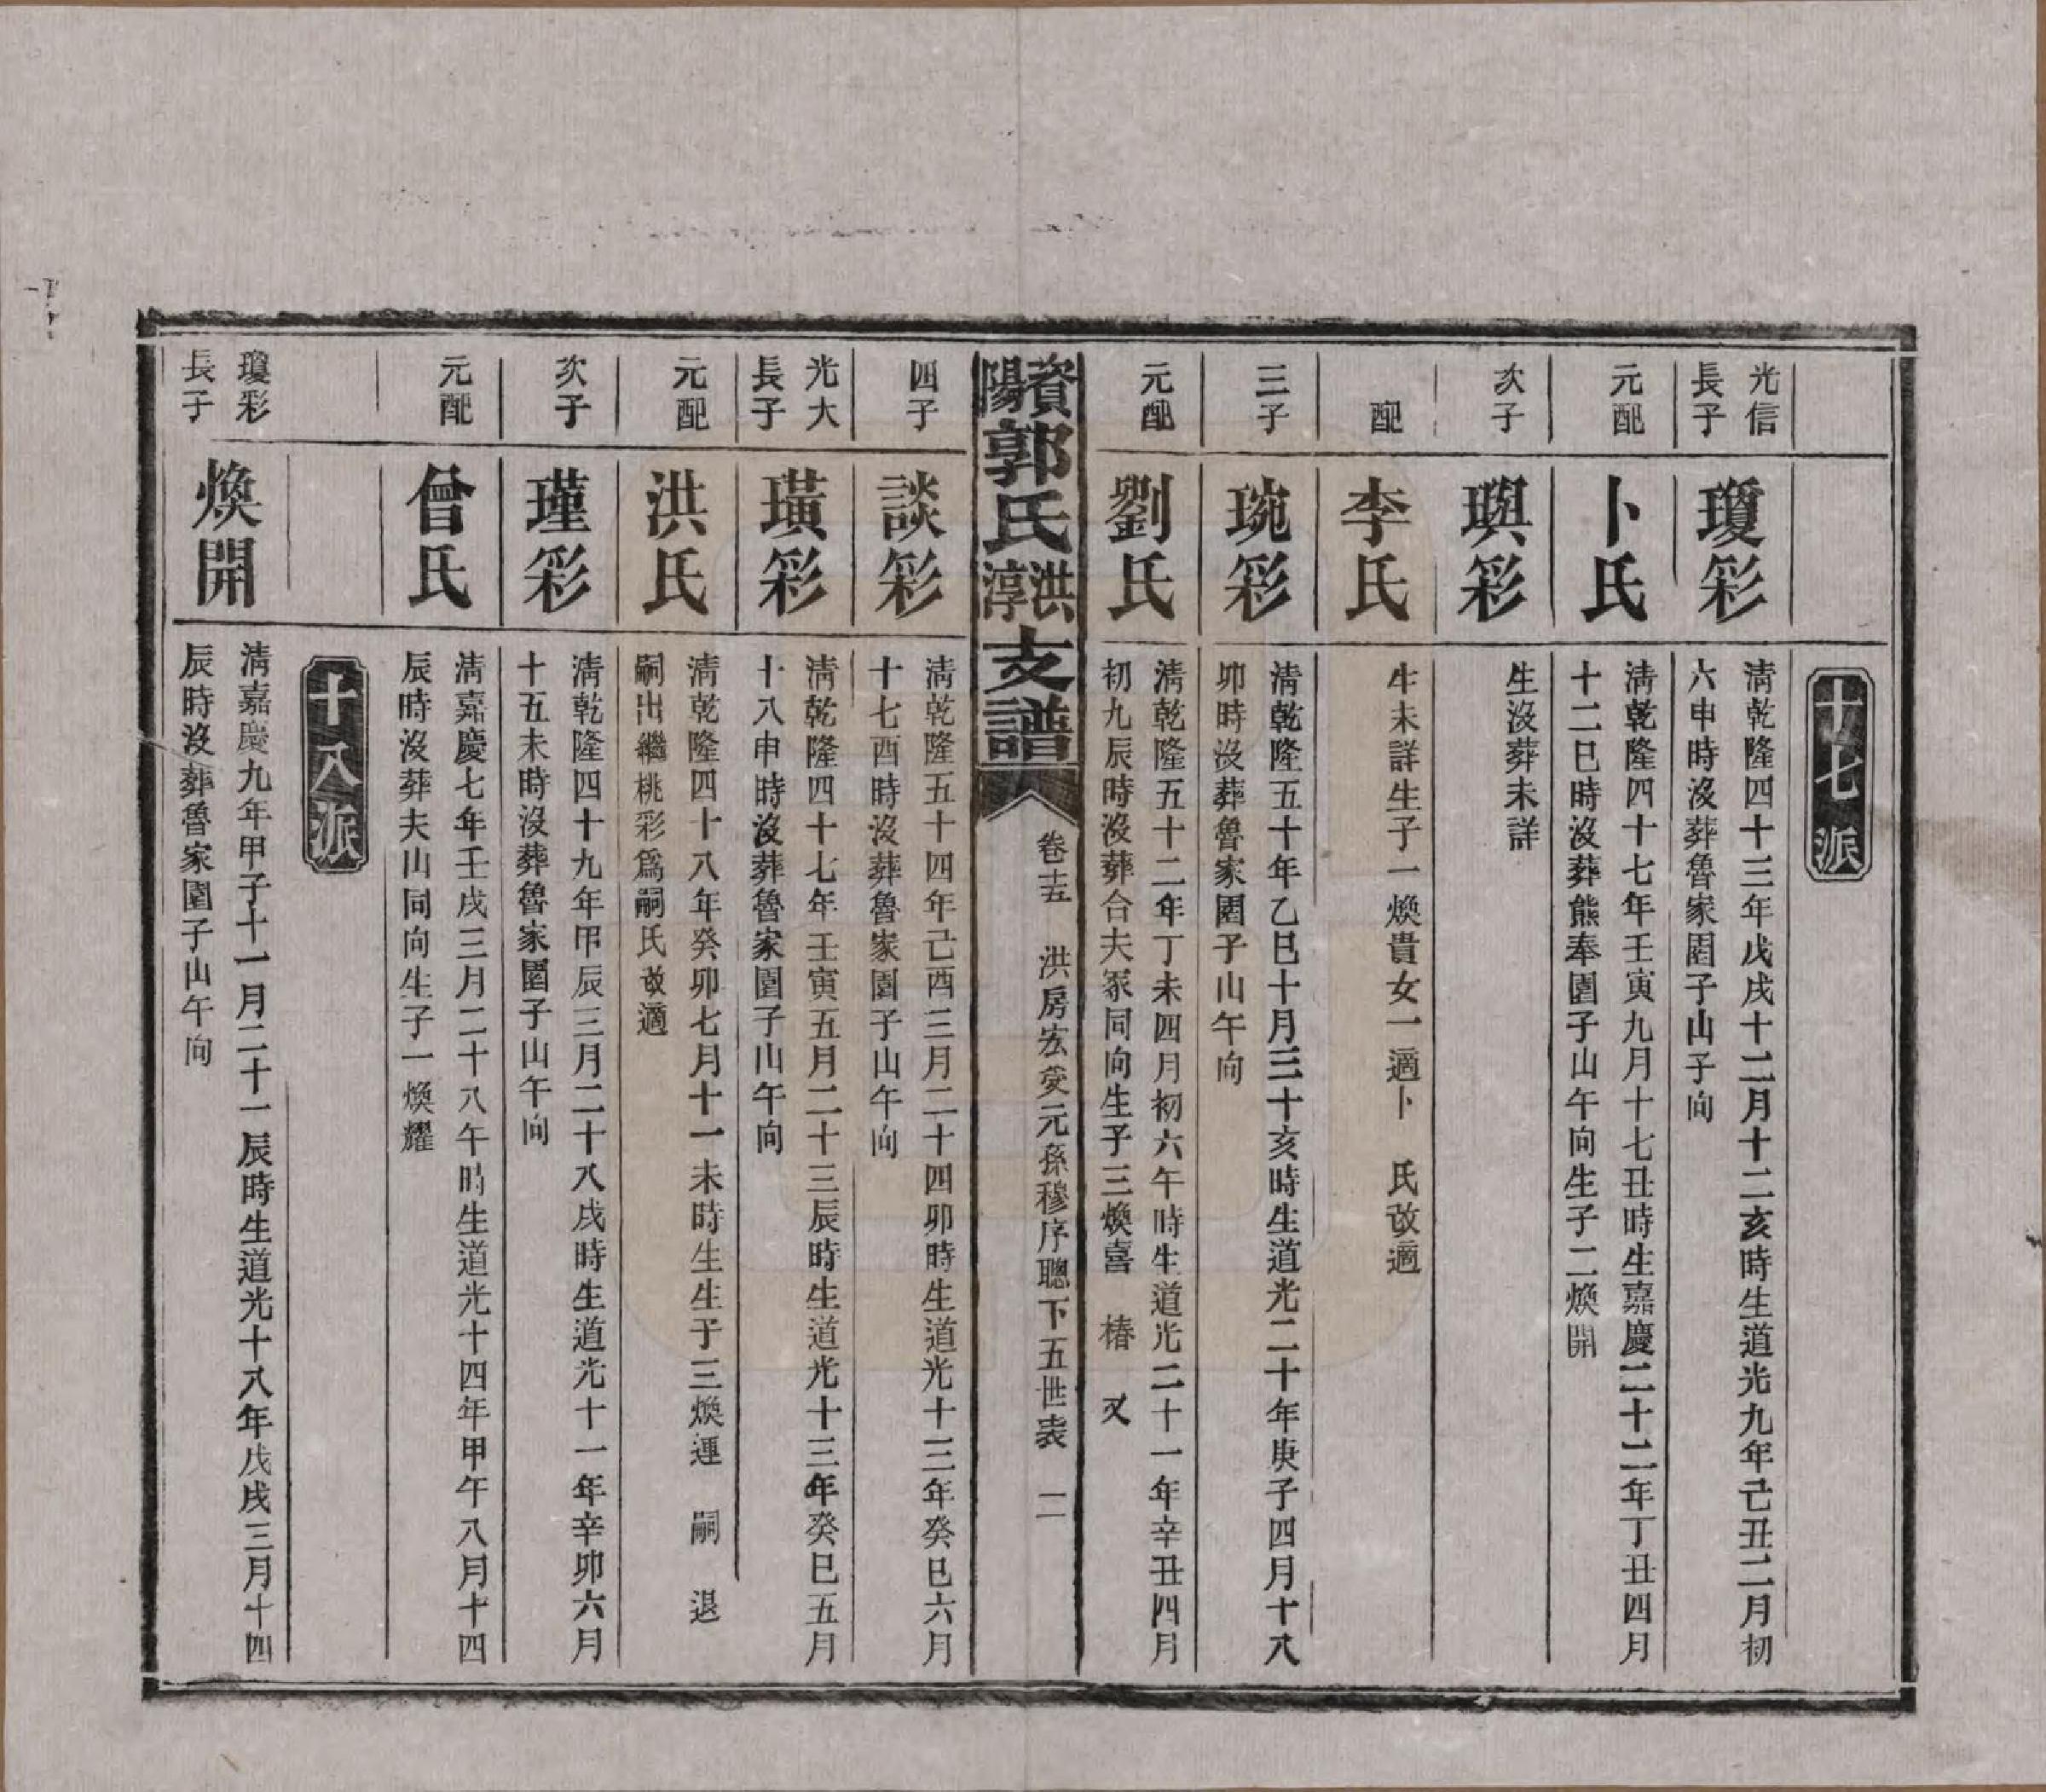 十七派
光信
長子
瓊彩
淸乾隆四十三年戊戌十二月十二亥時生道光九年己丑二月初
六申時沒葬魯家園子山子向
元配
卜氏
淸乾隆四十七年壬寅九月十七丑時生嘉慶二十二年丁丑四月
十二巳時沒葬熊奉園子山午向生子二煥開
次子
璵彩
生沒葬未詳
配
李氏
生未詳生子一煥貴女一適卜　氏改適
三子
琬彩
淸乾隆五十年乙巳十月三十亥時生道光二十年庚子四月十八
卯時沒葬魯家園子山午向
元配
劉氏
淸乾隆五十二年丁未四月初六午時生道光二十一年辛丑四月
初九辰時沒葬合夫冢同向生子三煥喜　椿　又
資陽郭氏洪淳支譜
卷十五　洪房宏受元孫穆序聰下五世表　二
四子
談彩
淸乾隆五十四年己酉三月二十四卯時生道光十三年癸巳六月
十七酉時沒葬魯家園子山午向
光大
長子
璜彩
淸乾隆四十七年壬寅五月二十三辰時生道光十三年癸巳五月
十八申時沒葬魯家園子山午向
元配
洪氏
淸乾隆四十八年癸卯七月十一未時生生子三煥運　嗣　退
嗣出繼桃彩爲嗣氏改適
次子
瑾彩
淸乾隆四十九年甲辰三月二十八戌時生道光十一年辛卯六月
十五未時沒葬魯家園子山午向
元配
曾氏
淸嘉慶七年壬戌三月二十八午時生道光十四年甲午八月十四
辰時沒葬夫山同向生子一煥耀
十八派
瓊彩
長子
煥開
淸嘉慶九年甲子十一月二十一辰時生道光十八年戊戌三月十四
辰時沒葬魯家園子山午向